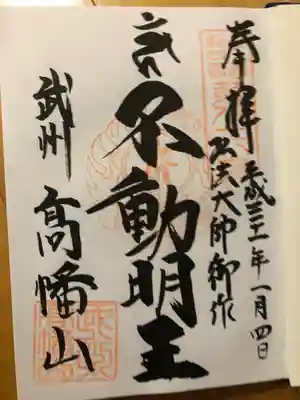 奉拝
平成三十一年一月四日
弘法大師御作
不動明王
武州 高幡山